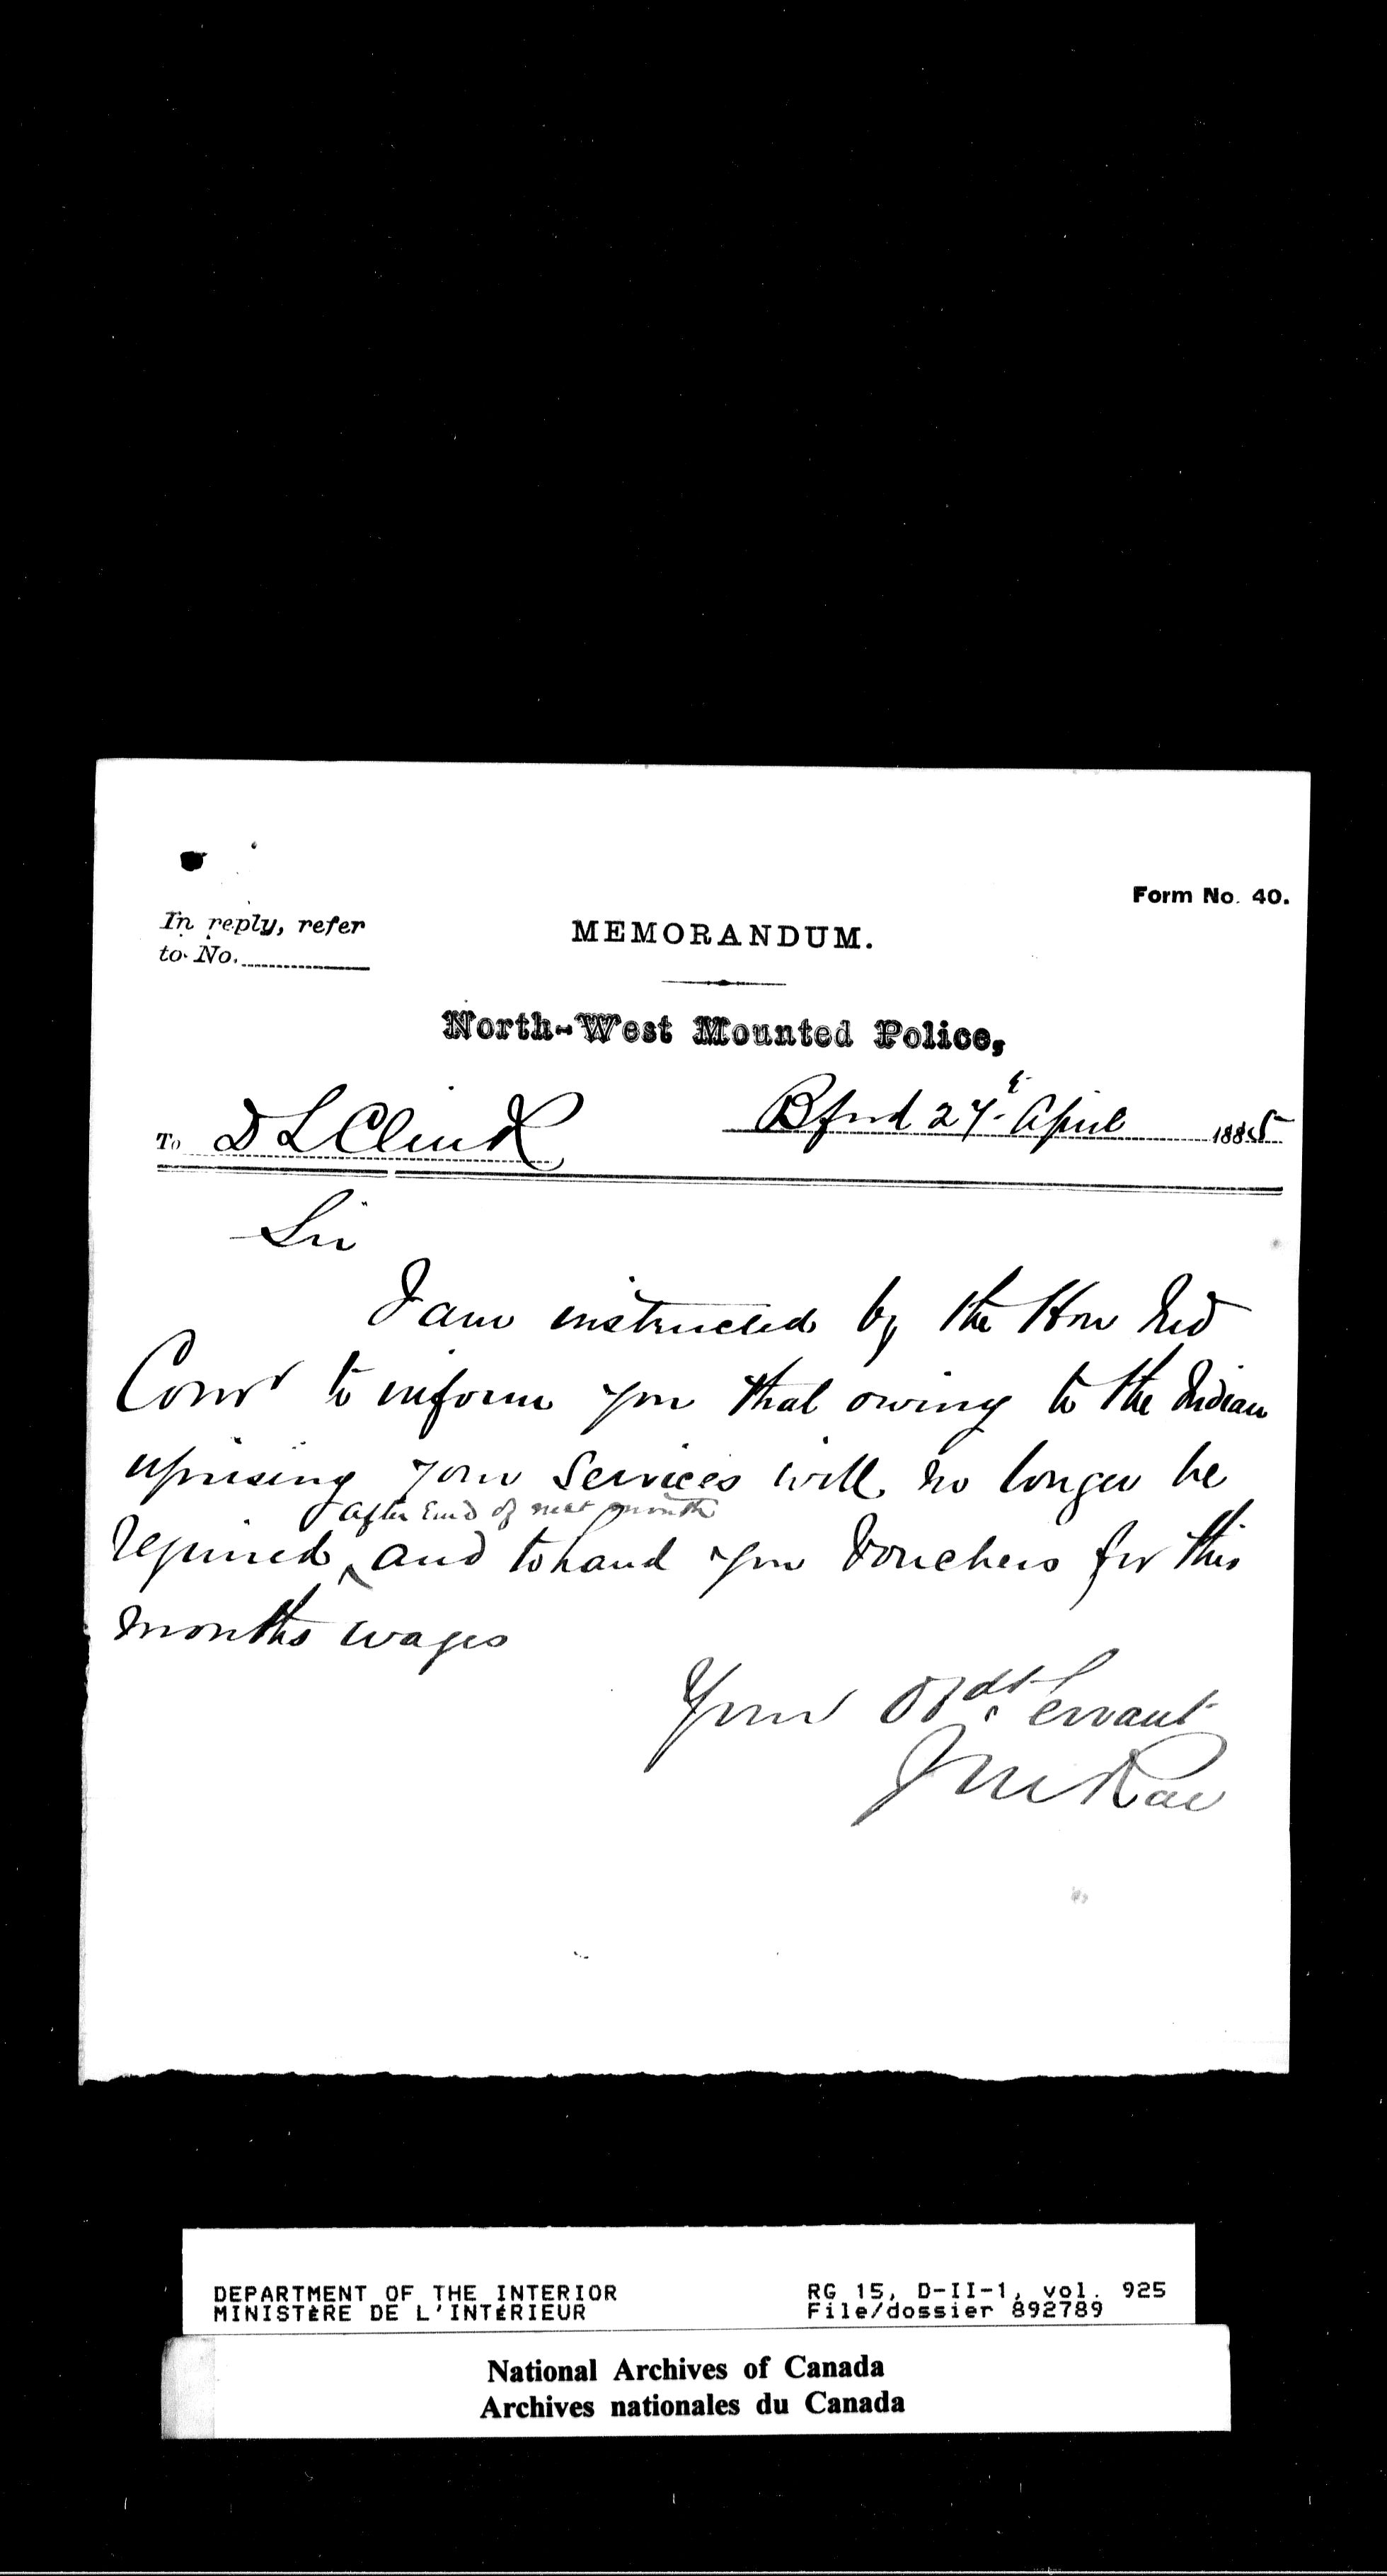 Form No. 40.
In reply, refer
to No.
MEMORANDUM.
North-West Mounted Police,
Bford 27t April 1885
To D L Clink
Sir
I am instructed by the Hon Ind
Comr to inform you that owing to the Indian
uprising your Services will no longer be
after End of next month
required and to hand you Vouchers for this
months wages
Your Obdt Servant
J M Rae
DEPARTMENT OF THE INTERIOR
MINISTÈRE DE L'INTÉRIEUR
RG 15, D-II-1, vol. 925
File/dossier 892789
National Archives of Canada
Archives nationales du Canada